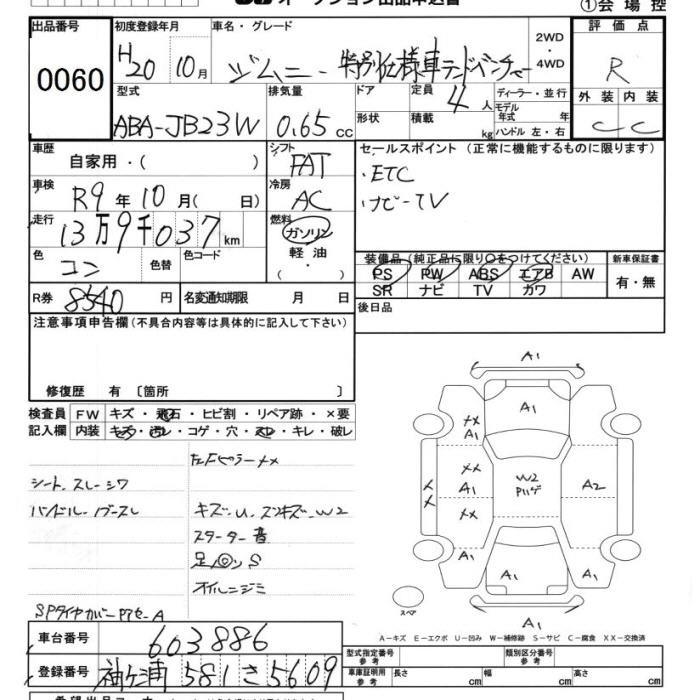 オークション出品申込書
①会場控
出品番号
0060
初度登録年月
H20 10月
車名・グレード
ジムニー 特別仕様車ランドベンチャー
2WD
・
4WD
評価点
R
外装 内装
C C
型式
ABA-JB23W
排気量
0.65 cc
ドア
形状
定員
4 人
積載
kg
ディーラー・並行
モデル
年式 年
ハンドル 左・右
車歴
自家用・( )
シフト
FAT
セールスポイント (正常に機能するものに限ります)
・ETC
・ナビ-TV
車検
R9年10月( 日)
冷房
AC
走行
13万9千037km
燃料
ガソリン
軽油
・
色
コン
色替
色コード
装備品 (純正品に限り○をつけてください)
PS PW ABS エアB AW
SR ナビ TV カワ
新車保証書
有・無
R券
8540円
名変通知期限 月 日
後日品
注意事項申告欄(不具合内容等は具体的に記入して下さい)
修復歴 有 〔箇所 〕
検査員
記入欄
FW キズ・飛石・ヒビ割・リペア跡・×要
内装 キズ・汚レ・コゲ・穴・スレ・キレ・破レ
左Fピラー××
シート、スレ-シワ
ハンドル-
キズ-U、-W2
スターター音
足◎S
オイルニジミ
SPタイヤカバー A
A1
A1
××
A1
××
A1
××
××
W2
Pハゲ
A2
A1
A1
A1
A1
スペア
A-キズ E-エクボ U-凹み W-補修跡 S-サビ C-腐食 XX-交換済
車台番号
603886
型式指定番号
参考
類別区分番号
参考
登録番号
袖ケ浦 581 さ 5609
車庫証明用
参考
長さ cm 幅 cm 高さ cm